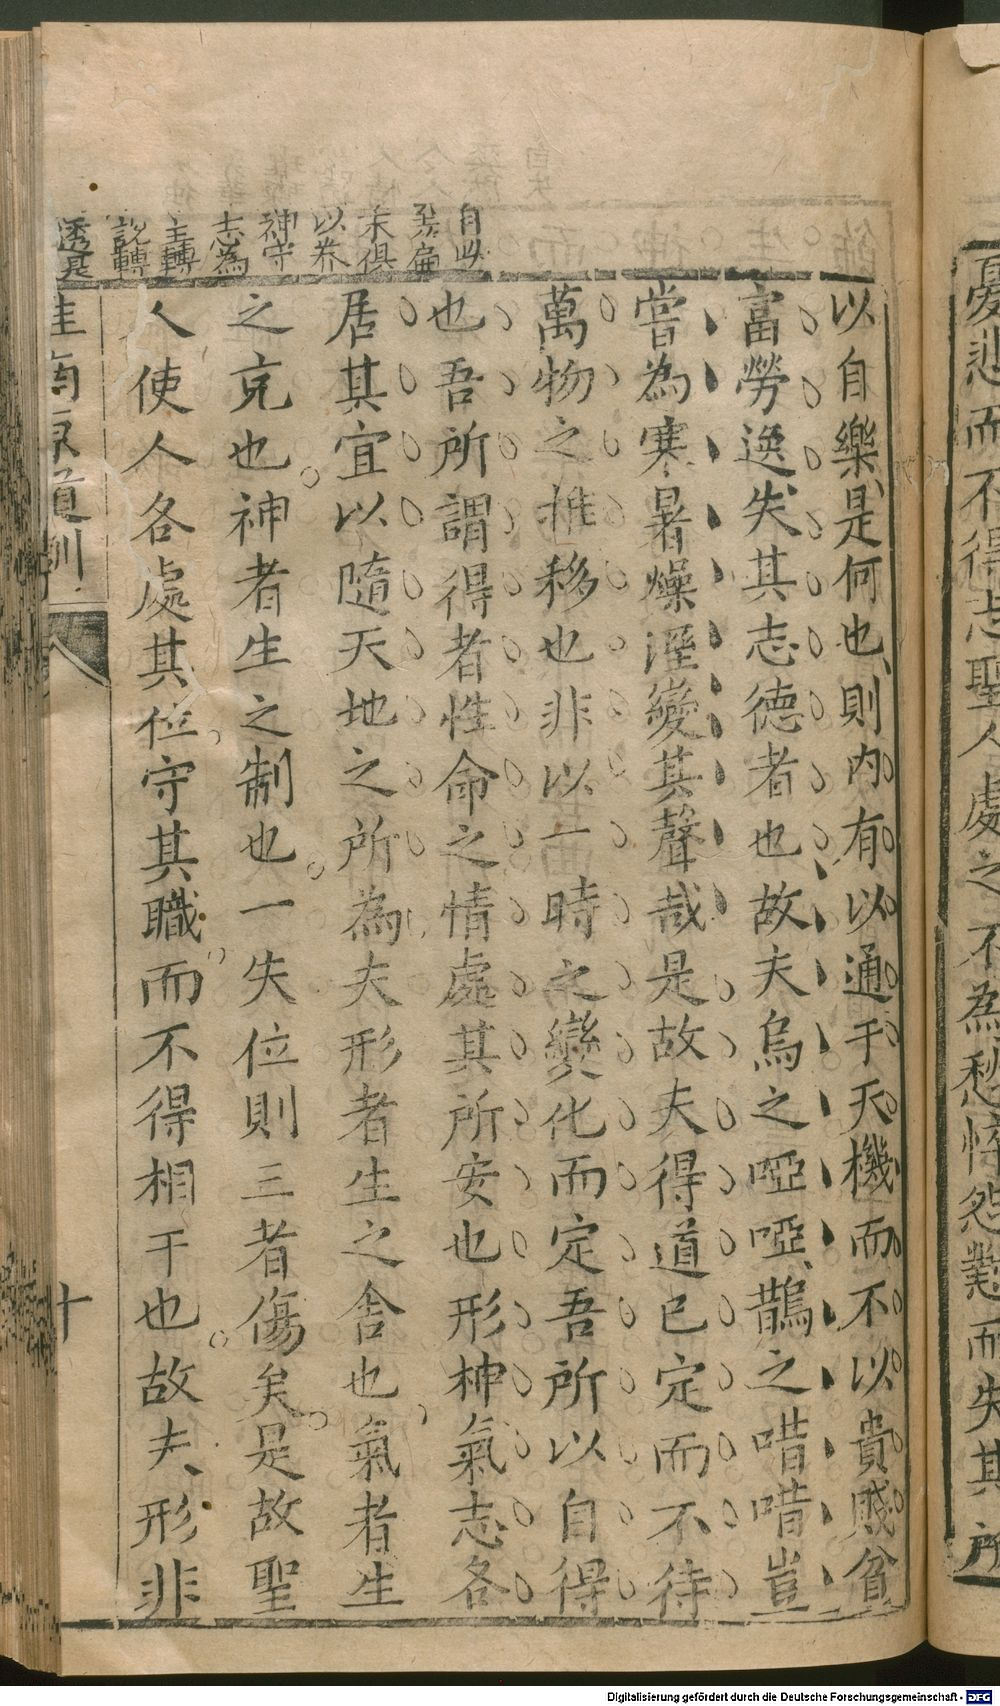 憂悲而不得志聖人處之不為愁悴怨懟而失其所
以自樂是何也則內有以通于天機而不以貴賤貧
富勞逸失其志德者也故夫烏之啞啞鵲之唶唶豈
嘗為寒暑燥溼變其聲哉是故夫得道已定而不待
萬物之推移也非以一時之變化而定吾所以自得
也吾所謂得者性命之情處其所安也形神氣志各
居其宜以隨天地之所為夫形者生之舍也氣者生
之充也神者生之制也一失位則三者傷矣是故聖
人使人各處其位守其職而不得相干也故夫形非
自此
至扁
末俱
以養
神守
志為
主轉
說轉
透是
淮南原道訓
十
Digitalisierung gefördert durch die Deutsche Forschungsgemeinschaft - DFG